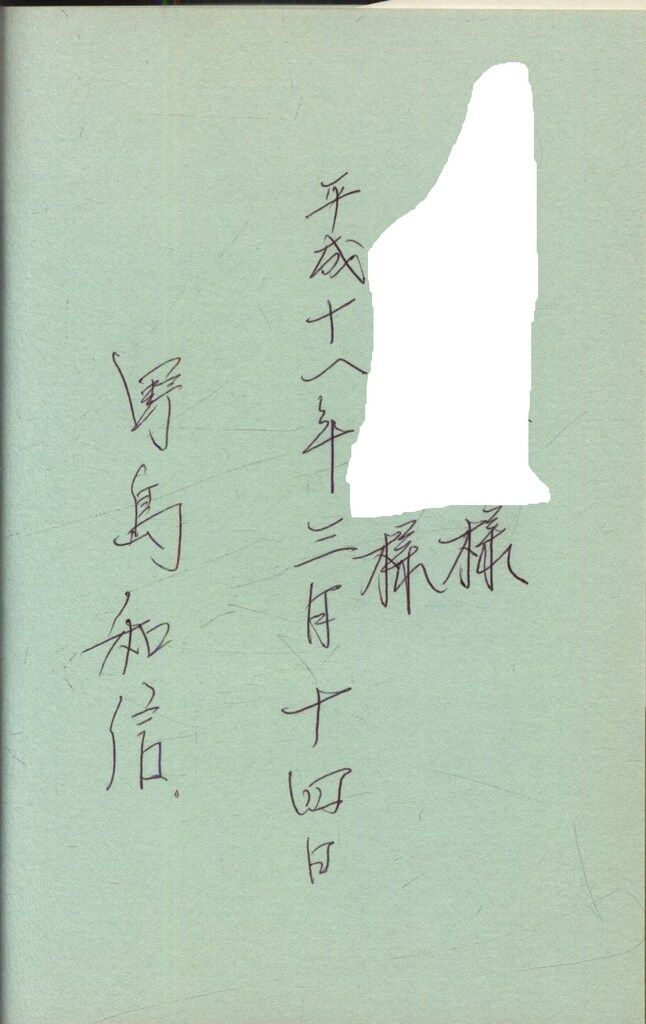 様
様
平成十八年三月十四日
野島和信